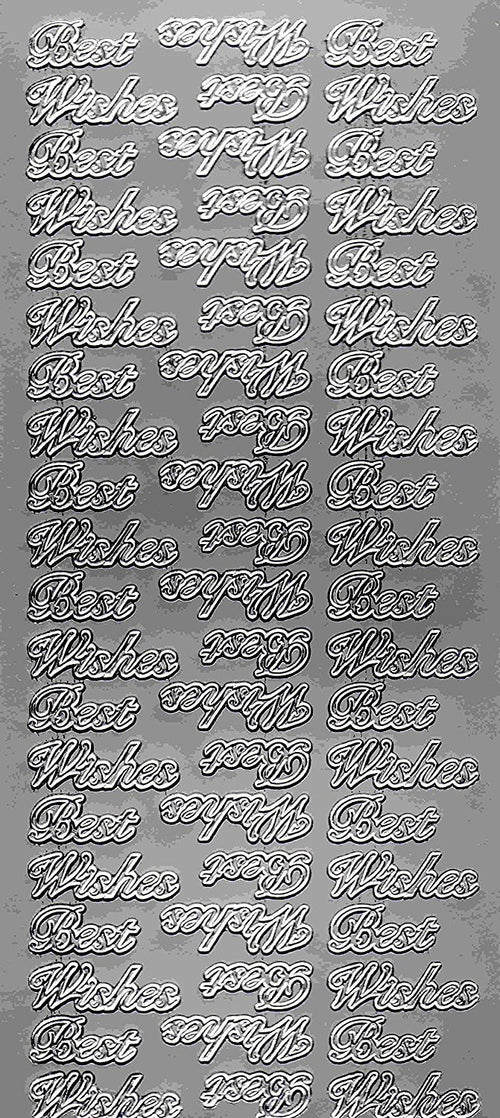 Best Wishes Best
Wishes Best Wishes
Best Wishes Best
Wishes Best Wishes
Best Wishes Best
Wishes Best Wishes
Best Wishes Best
Wishes Best Wishes
Best Wishes Best
Wishes Best Wishes
Best Wishes Best
Wishes Best Wishes
Best Wishes Best
Wishes Best Wishes
Best Wishes Best
Wishes Best Wishes
Best Wishes Best
Wishes Best Wishes
Best Wishes Best
Wishes Best Wishes